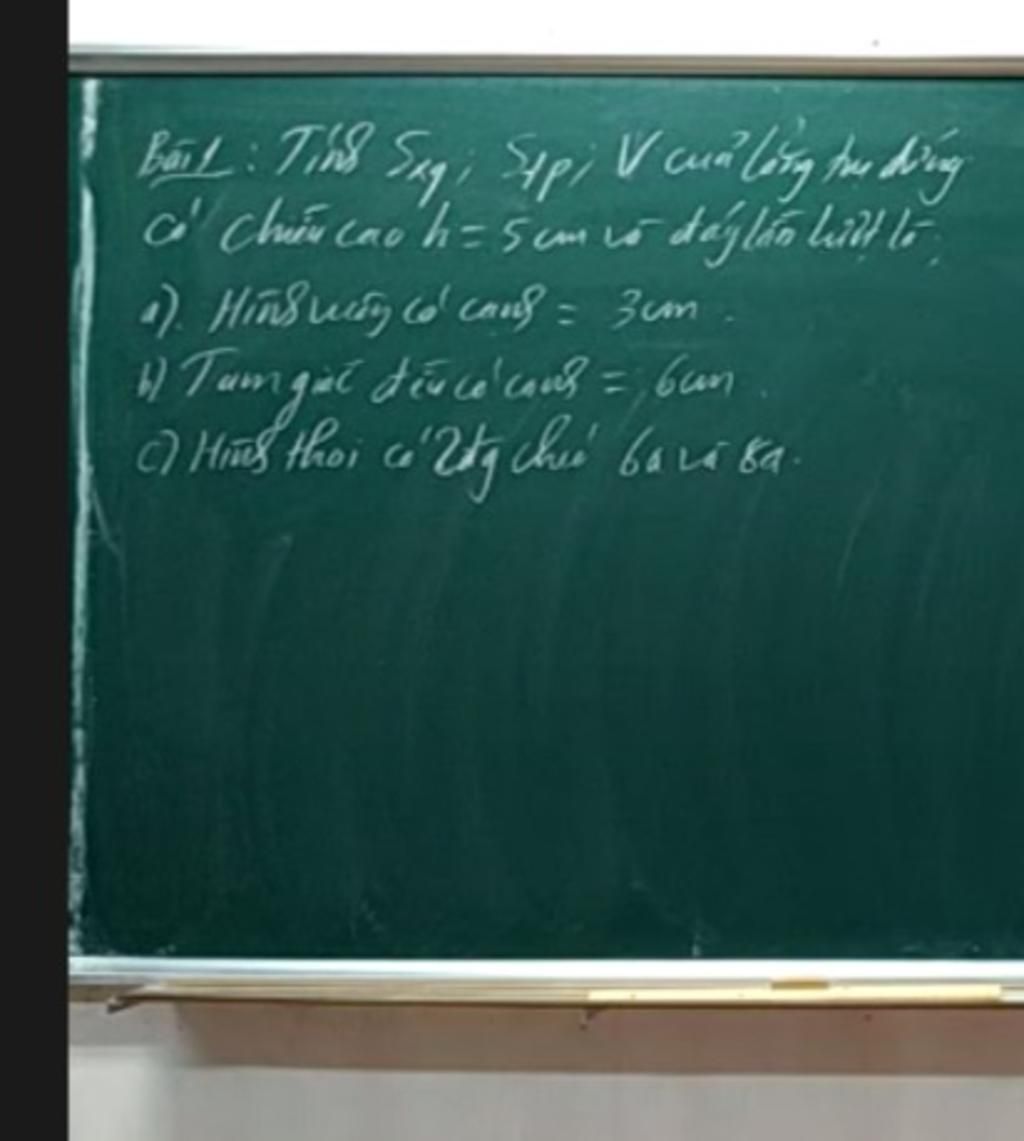 Bài 1: Tính Sxq; Stp; V của lăng trụ đứng
có chiều cao h = 5 cm và đáy lần lượt là:
a). Hình vuông có cạnh = 3cm.
b) Tam giác đều có cạnh = 6cm.
c) Hình thoi có 2đg chéo 6a và 8a.